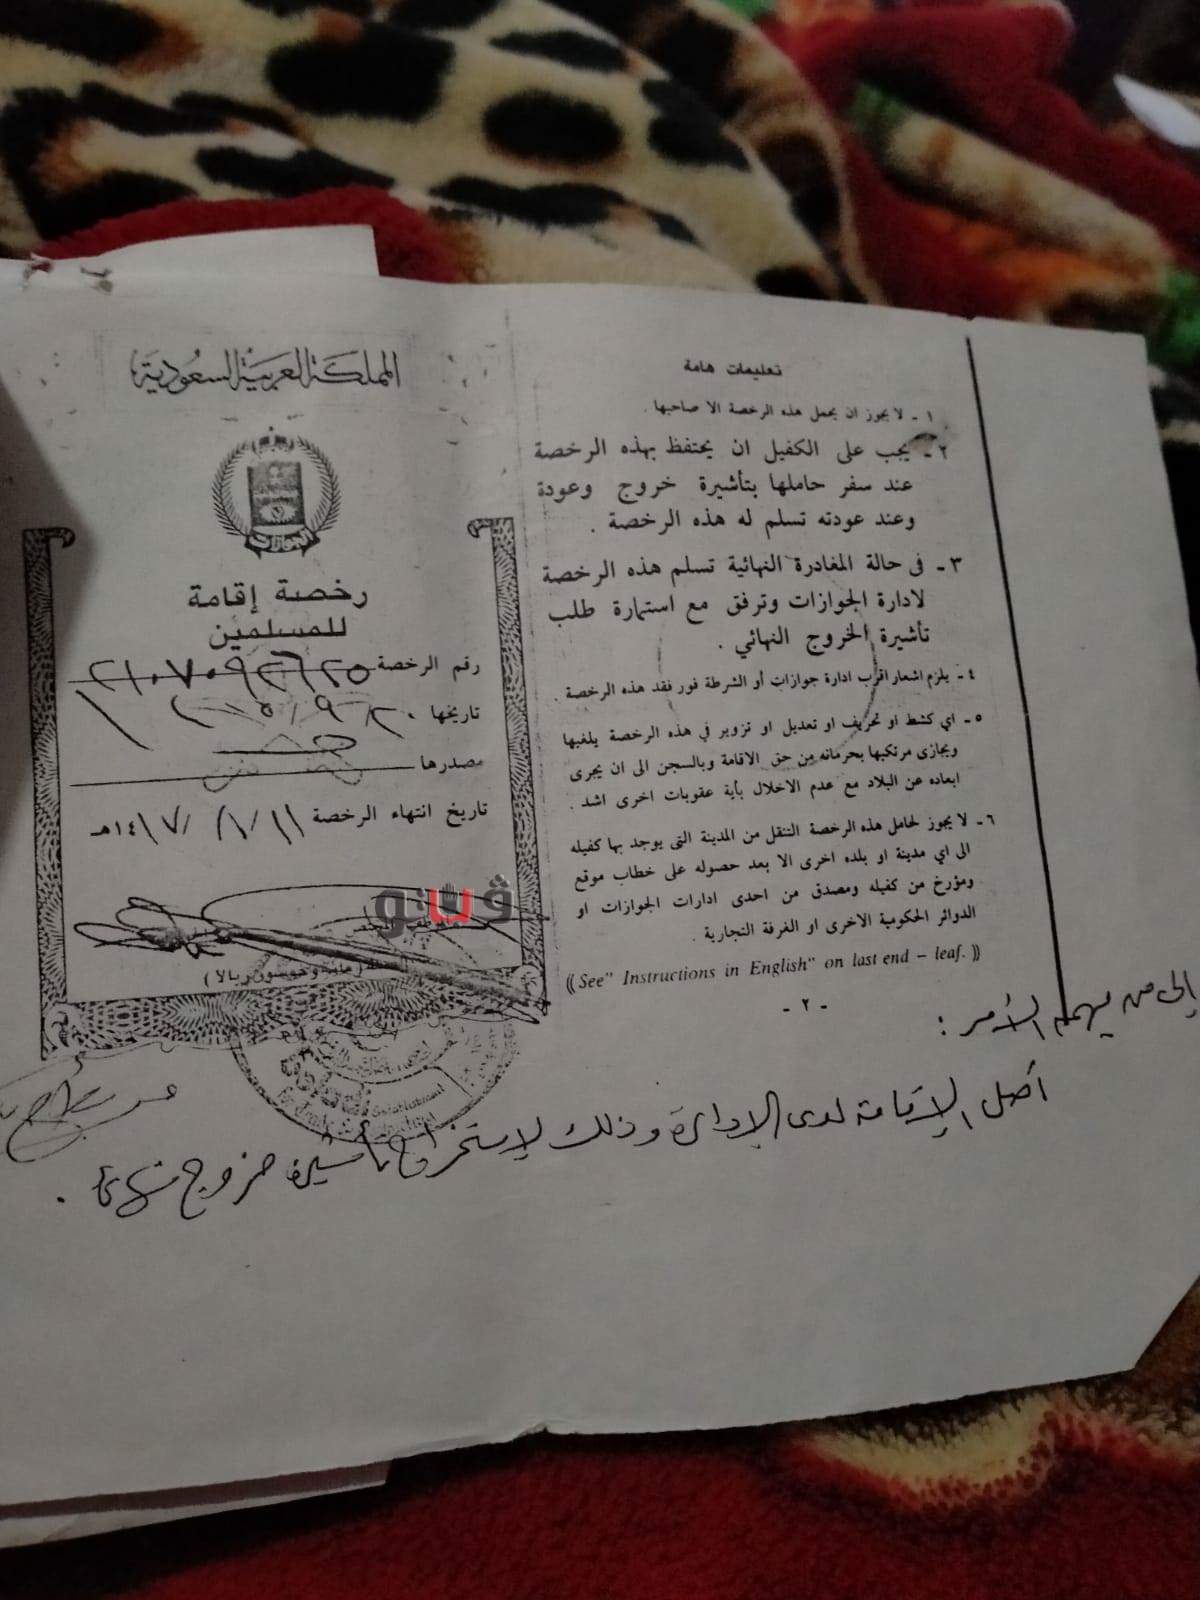 المملكة العربية السعودية
الجوازات
رخصة إقامة
للمسلمين
رقم الرخصة ٢١٠٧٠٩٢٦٢٥
تاريخها
مصدرها
تاريخ انتهاء الرخصة ١١/١/١٤١٧هـ
ڤيتو
تعليمات هامة
١ - لا يجوز ان يحمل هذه الرخصة الا صاحبها .
٢ - يجب على الكفيل ان يحتفظ بهذه الرخصة
عند سفر حاملها بتأشيرة خروج وعودة
وعند عودته تسلم له هذه الرخصة .
٣ - في حالة المغادرة النهائية تسلم هذه الرخصة
لادارة الجوازات وترفق مع استمارة طلب
تأشيرة الخروج النهائي .
٤ - يلزم اشعار اقرب ادارة جوازات أو الشرطة فور فقد هذه الرخصة .
٥ - اي كشط او تحريف او تعديل او تزوير في هذه الرخصة يلغيها
ويجازى مرتكبها بحرمانه من حق الاقامة وبالسجن الى ان يجرى
ابعاده عن البلاد مع عدم الاخلال بأية عقوبات اخرى اشد .
٦ - لا يجوز لحامل هذه الرخصة التنقل من المدينة التى يوجد بها كفيله
الى اي مدينة او بلده اخرى الا بعد حصوله على خطاب موقع
ومؤرخ من كفيله ومصدق من احدى ادارات الجوازات او
الدوائر الحكومية الاخرى او الغرفة التجارية .
((See" Instructions in English" on last end – leaf.))
- ٢ -
إلى من يهمه الأمر :
أصل الإقامة لدى الإدارة وذلك لإستخراج تأشيرة خروج نهائي .